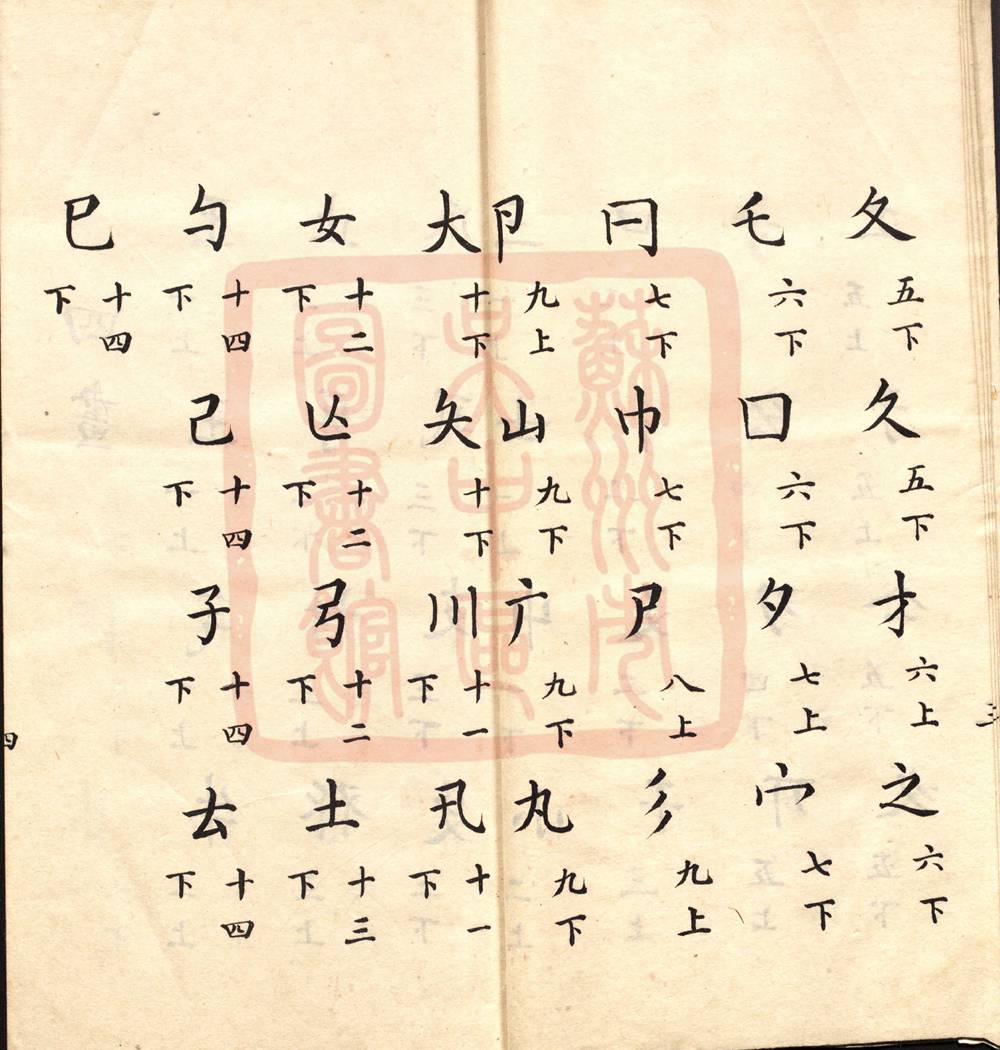 夂 五下 久 五下 才 六上 之 六下
乇 六下 囗 六下 夕 七上 宀 七下
𠔼 七下 巾 七下 尸 八上 彡 九上
卪 九上 山 九下 广 九下 丸 九下
大 十下 夨 十下 川 十一下 卂 十一下
女 十二下 亾 十二下 弓 十二下 土 十三下
勺 十四下 己 十四下 子 十四下 𠫓 十四下
巳 十四下
四
蘇州市
吳中區
圖書館